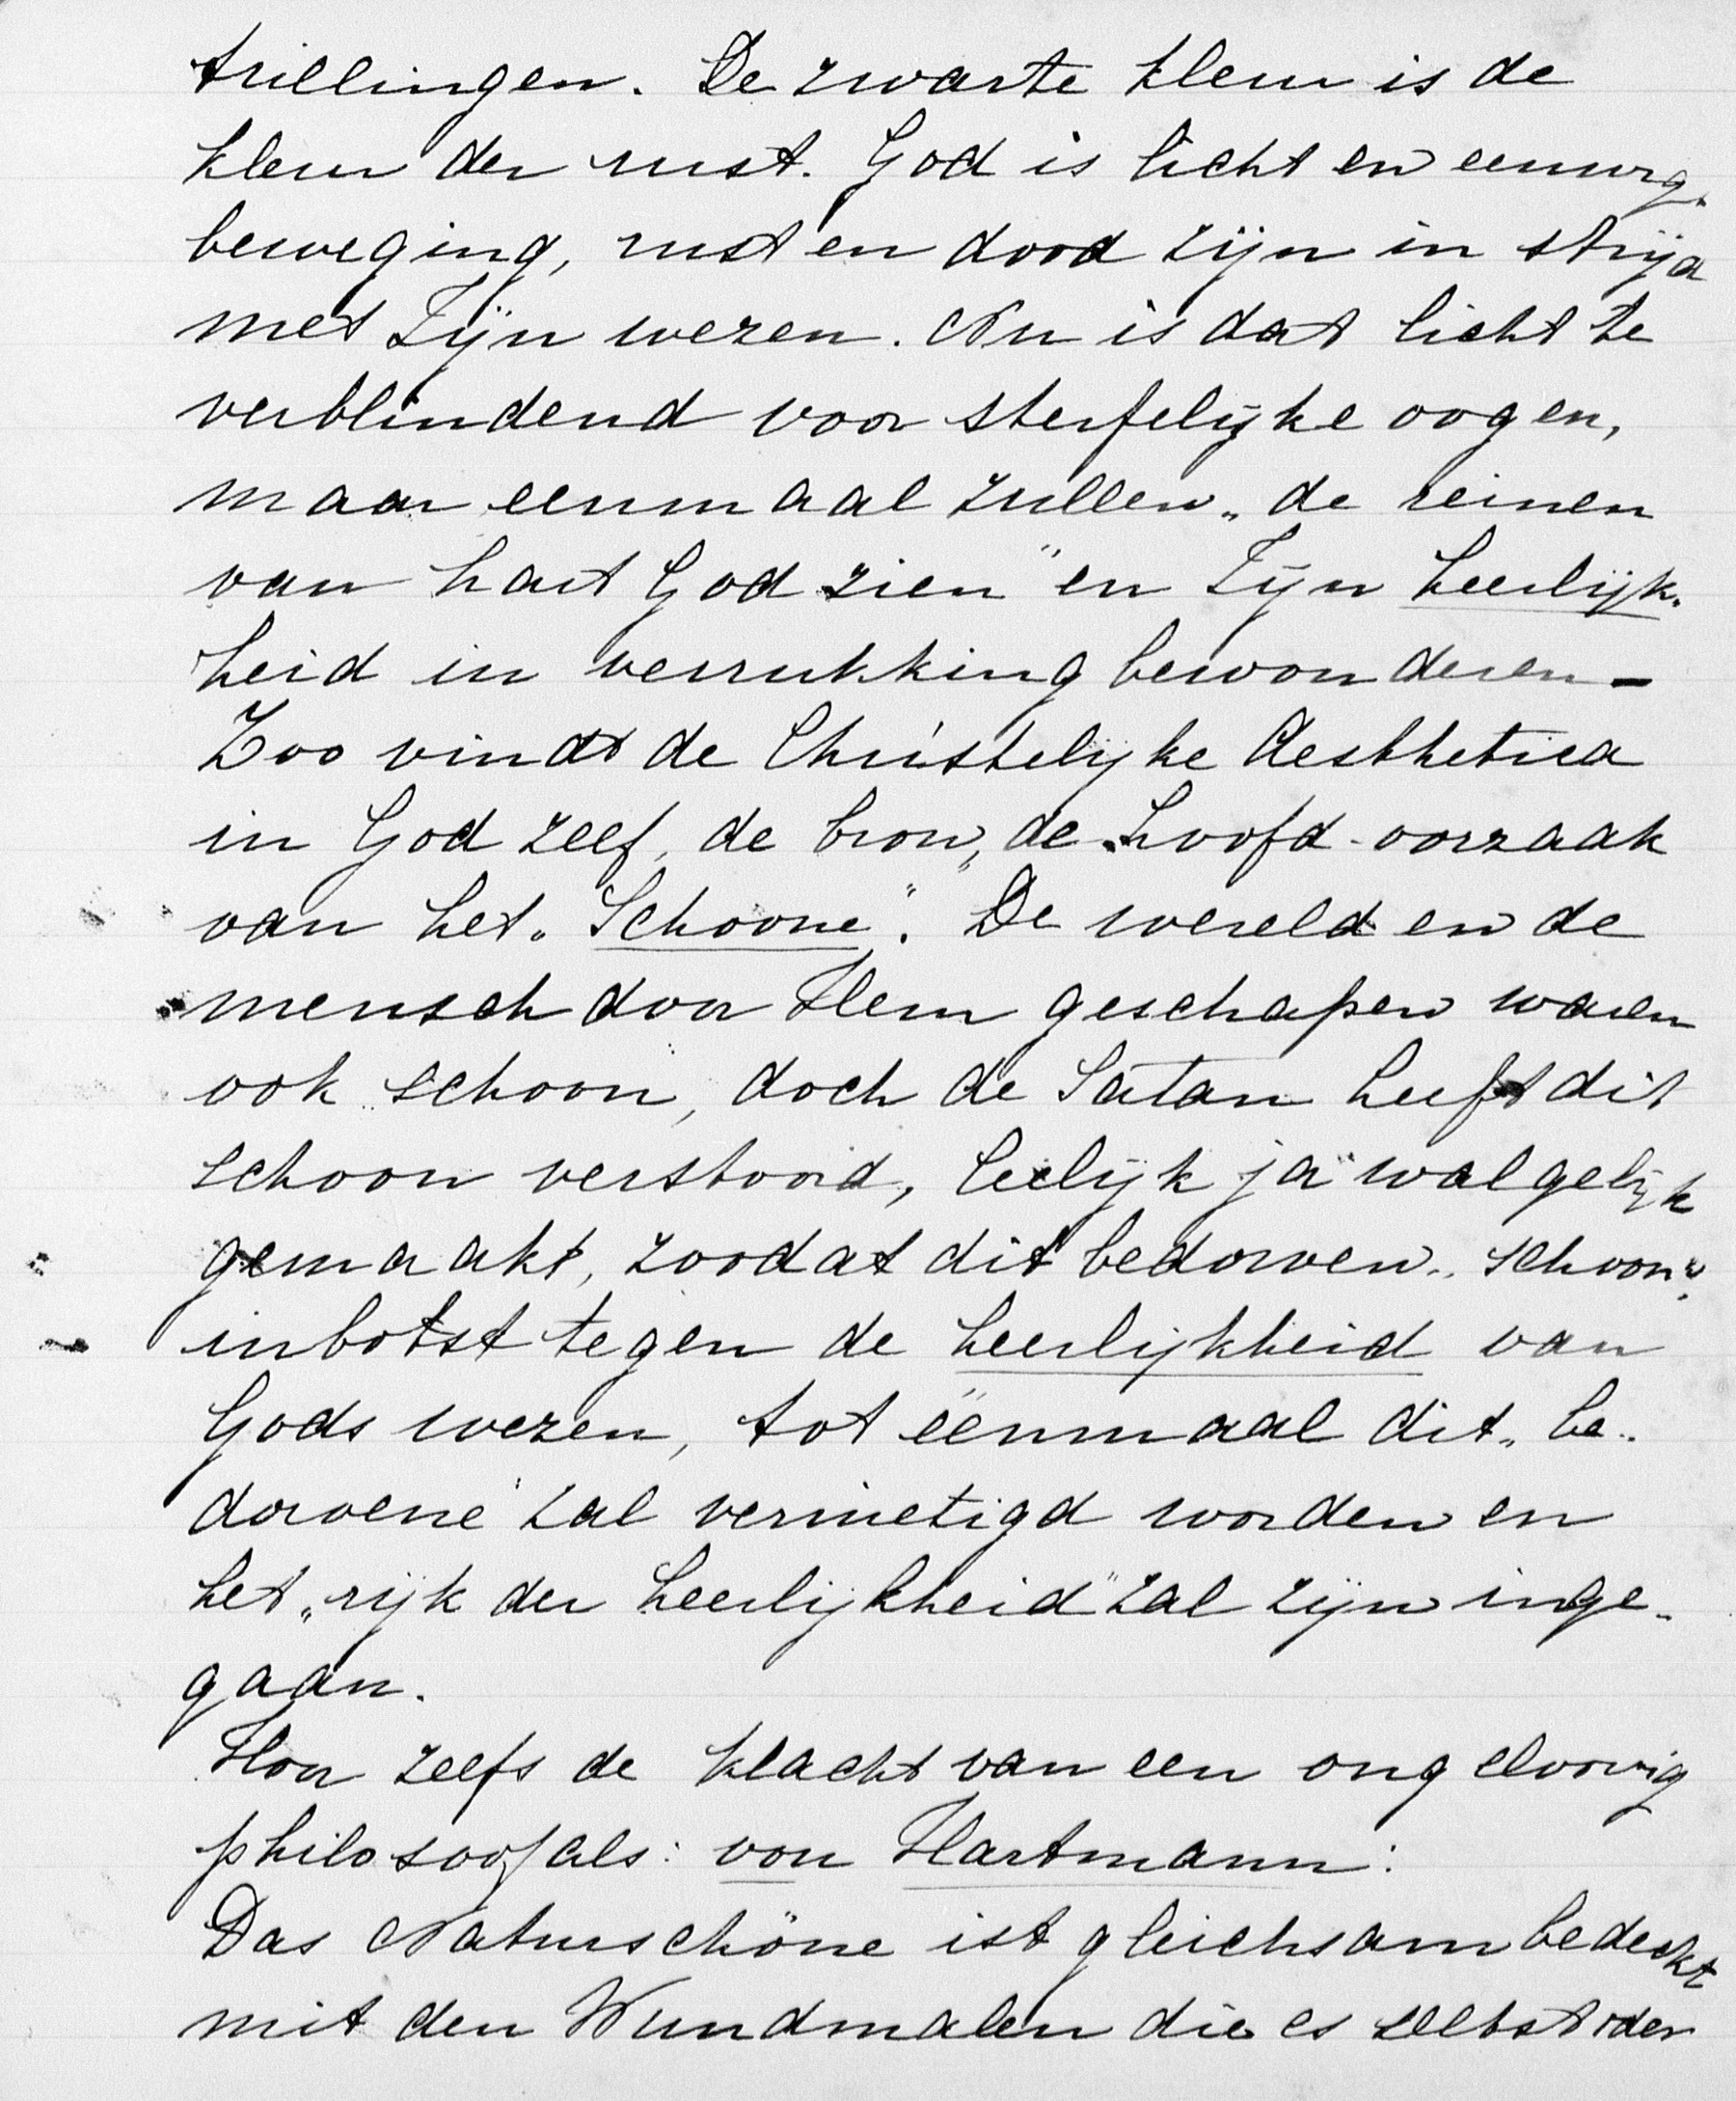 trillingen. De zwarte kleur is de
kleur der rust. God is licht en eeuwig.
beweging, rust en dood zijn in strijd
met Zijn wezen. Nu is dat licht te
verblindend voor sterfelijke oogen,
maar eenmaal zullen „de reinen
van hart God zien" en Zijn heerlijk-
heid in verrukking bewonderen –
Zoo vindt de Christelijke Aesthetica
in God zelf, de bron, de hoofd-oorzaak
van het „Schoone". De wereld en de
mensch door Hem geschapen waren
ook schoon, doch de Satan heeft dit
schoon verstoord, leelijk ja walgelijk
gemaakt, zoodat dit bedorven „schoon"
inbotst tegen de heerlijkheid van
Gods wezen, tot éénmaal dit „be-
dorvene" zal vernietigd worden en
het „rijk der heerlijkheid" zal zijn inge-
gaan.
Hoor zelfs de klacht van een ongeloovig
philosoof als: von Hartmann:
Das Naturschöne ist gleichsam bedeckt
mit den Wundmalen die es selbst oder